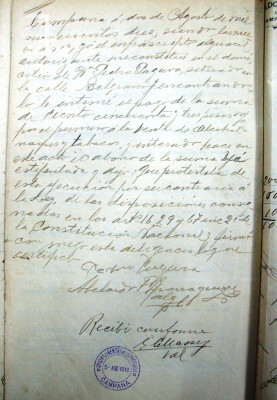 Campana á dos de Agosto de mil
novecientos diez, siendo las nueve
a m, yó el infrascripto
autorizante me constitui en el domi
cilio de Dn Pedro Pagura, situado en
la calle Belgrano y encontrando
lo le intimé el pago de la suma
de ciento cincuenta y tres pesos
por el permiso á la venta de Alcohol
naipes y tabaco, y enterado hace en
este acto abono de la suma ya
estipulada y dijo: que protesta de
esta ejecución por ser contraria á
la Ley, de las disposiciones consig
nadas en los art 16, 29 y 67 inc 2º de
la Constitución Nacional y firmó
con migo esta diligencia de que
certifico
Pedro Pagura
Abelardo
Recibi conforme
Val
5 AGO 1910
CAMPANA